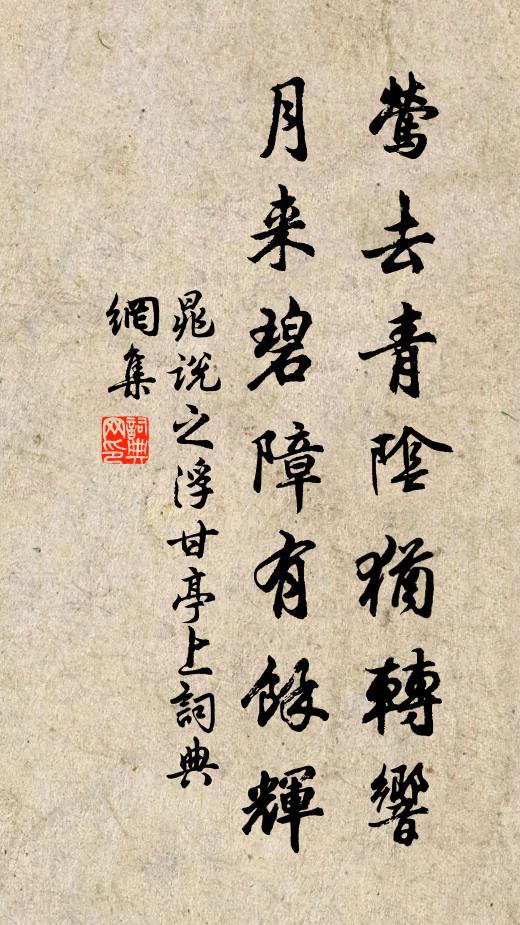 鶯去青陰猶轉響
月来碧障有餘輝
晁說之浮甘亭上詞典
網集
詞典网印